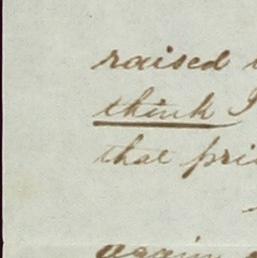 raised
think I
that pri
again